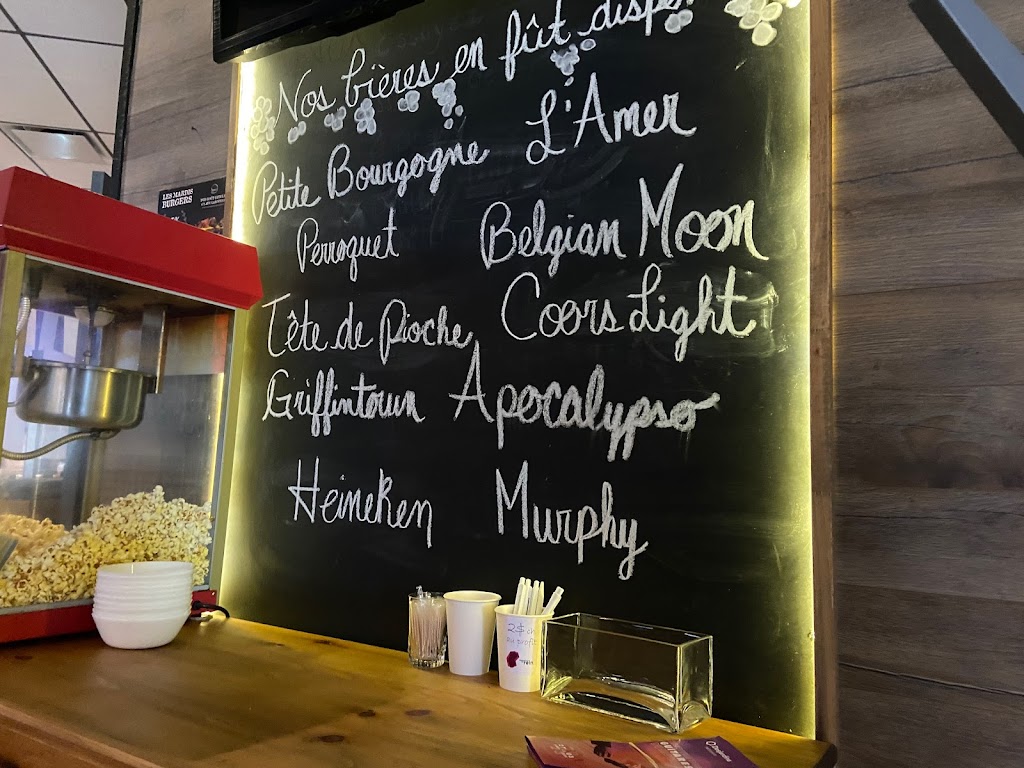 Nos bières en fût
Petite Bourgogne L'Amer
Perroquet Belgian Moon
Tête de Pioche Coors Light
Griffintown Apocalypso
Heineken Murphy
LES MARDIS
BURGERS
2$